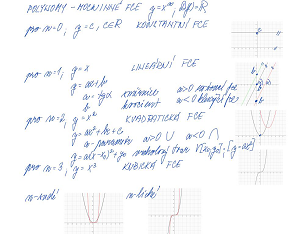 POLYNOMY - MOCNINNÉ FCE y=xⁿ, D(f)=R
pro n=0, y=c, c∈R KONSTANTNÍ FCE
pro n=1, y=x LINEÁRNÍ FCE
y=ax+b
a=tgα směrnice a>0 rostoucí fce
b a<0 klesající fce
pro n=2, y=x² KVADRATICKÁ FCE
y=ax²+bx+c
a- parametr a>0 ∪ a<0 ∩
y=a(x-x₀)²+y₀ vrcholový tvar V[x₀,y₀]
pro n=3, y=x³ KUBICKÁ FCE
n-sudé n-liché